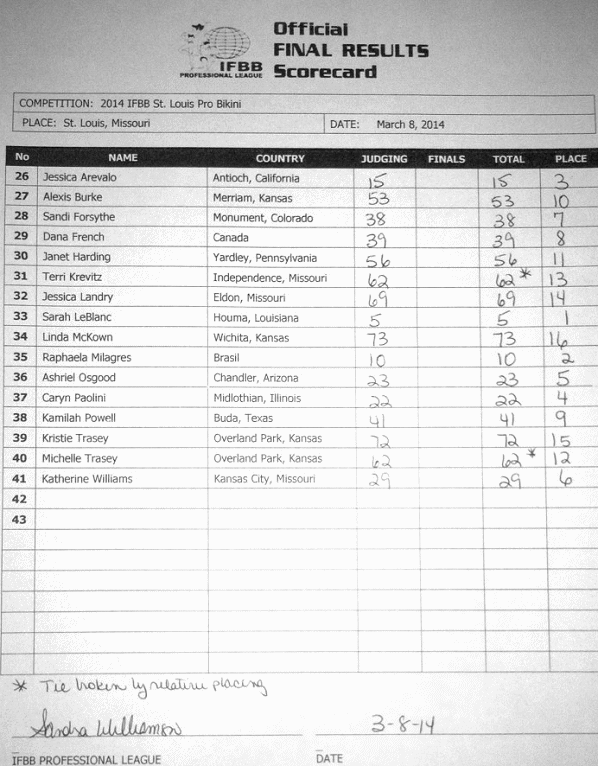 Official
FINAL RESULTS
Scorecard
IFBB
PROFESSIONAL LEAGUE
COMPETITION: 2014 IFBB St. Louis Pro Bikini
PLACE: St. Louis, Missouri DATE: March 8, 2014
No NAME COUNTRY JUDGING FINALS TOTAL PLACE
26 Jessica Arevalo Antioch, California 15 15 3
27 Alexis Burke Merriam, Kansas 53 53 10
28 Sandi Forsythe Monument, Colorado 38 38 7
29 Dana French Canada 39 39 8
30 Janet Harding Yardley, Pennsylvania 56 56 11
31 Terri Krevitz Independence, Missouri 62 62* 13
32 Jessica Landry Eldon, Missouri 69 69 14
33 Sarah LeBlanc Houma, Louisiana 5 5 1
34 Linda McKown Wichita, Kansas 73 73 16
35 Raphaela Milagres Brasil 10 10 2
36 Ashriel Osgood Chandler, Arizona 23 23 5
37 Caryn Paolini Midlothian, Illinois 22 22 4
38 Kamilah Powell Buda, Texas 41 41 9
39 Kristie Trasey Overland Park, Kansas 72 72 15
40 Michelle Trasey Overland Park, Kansas 62 62* 12
41 Katherine Williams Kansas City, Missouri 29 29 6
42
43
* Tie broken by relative placing
Sandra Williamson 3-8-14
IFBB PROFESSIONAL LEAGUE DATE